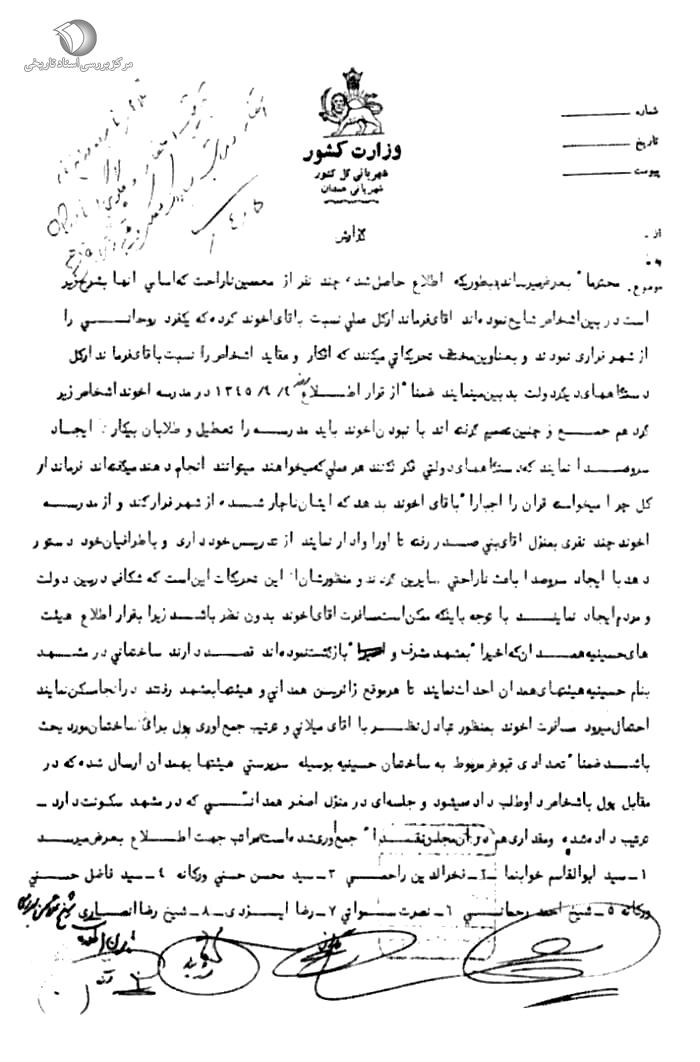 مرکز بررسی اسناد تاریخی
شماره
تاریخ
پیوست
وزارت کشور
شهربانی کل کشور
شهربانی همدان
از ـ
گزارش
به
موضوع: محترما" بعرض میرساند بطوریکه اطلاع حاصل شده چند نفر از معممین ناراحت که اسامی آنها بشرح زیر
است در بین اشخاص شایع نموده اند آقای فرماندار کل عملی نسبت باقای اخوند کرده که یکفرد روحانـــی را
از شهر فراری نمودند و بعناوین مختلف تحریکاتی میکنند که افکار و عقاید اشخاص را نسبت باقای فرماندار کل
دستگاههای دیگر دولت بدبین مینمایند ضمنا" از قرار اطـــلاع ۱۳۴۵/۹/۴ در مدرسه اخوند اشخاص زیر
گرد هم جمـــع و چنین تصمیم گرفته اند با نبودن اخوند باید مدرسـه را تعطیل و طلابان بیکار تا ایجـاد
سروصـدا نمایند که دستگاههای دولتی فکر نکنند هر عملی که میخواهند میتوانند انجام دهند میگفته اند فرماندار
کل چرا میخواسته قران را اجبارا" باقای اخوند بدهد که ایشان ناچار شــده از شهر فرار کند و از مدرسـه
اخوند چند نفری بمنزل اقای بنی صـدر رفته تا اورا وادار نمایند از تدریس خود داری و باطرافیان خود دستور
دهد با ایجاد سروصدا باعث ناراحتی سایرین گردند و منظورشان از این تحریکات این است که شکافی در بین دولت
و مردم ایجاد نماینـد با توجه باینکه ممکن است مسافرت اقای اخوند بدون نظر باشـد زیرا بقرار اطلاع هیئت
های حسینیه همـدان که اخیرا" بمشهد مشرف و اخیرا" بازگشت نموده اند قصـد دارند ساختمانی در مشـهد
بنام حسینیه هیئتهای همدان احداث نمایند تا هر موقع زائرین همدانی و هیئتها بمشهد رفتند در انجا سکن نمایند
احتمال میرود مسافرت اخوند بمنظور تبادل نظـر با اقای میلانی و ترتیب جمع اوری پول برای ساختمان مورد بحث
باشـد ضمنا" تعدادی قبوض مربوط به ساختمان حسینیه بوسیله سرپرستی هیئتها بهمدان ارسال شده که در
مقابل پول باشخاص داوطلب داده میشود و جلسه ای در منزل اصغر همدانـی که در مشهد سکونت دارد ـ
ترتیب داده شده و مقداری هم در ان مجلس نقـدا" جمع اوری شده است مراتب جهت اطـلاع بعرض میرسـد
۱ـ سید ابوالقاسم خوابنما ۲ـ فخرالدین راحمـی ۳ـ سید محسن حسنی ورکانه ۴ـ سید فاضل حسنی
ورکانه ۵ـ شیخ احمد رحمانـی ۶ـ نصرت سـواتی ۷ـ رضا ایـزدی ۸ـ شیخ رضا انصـاری